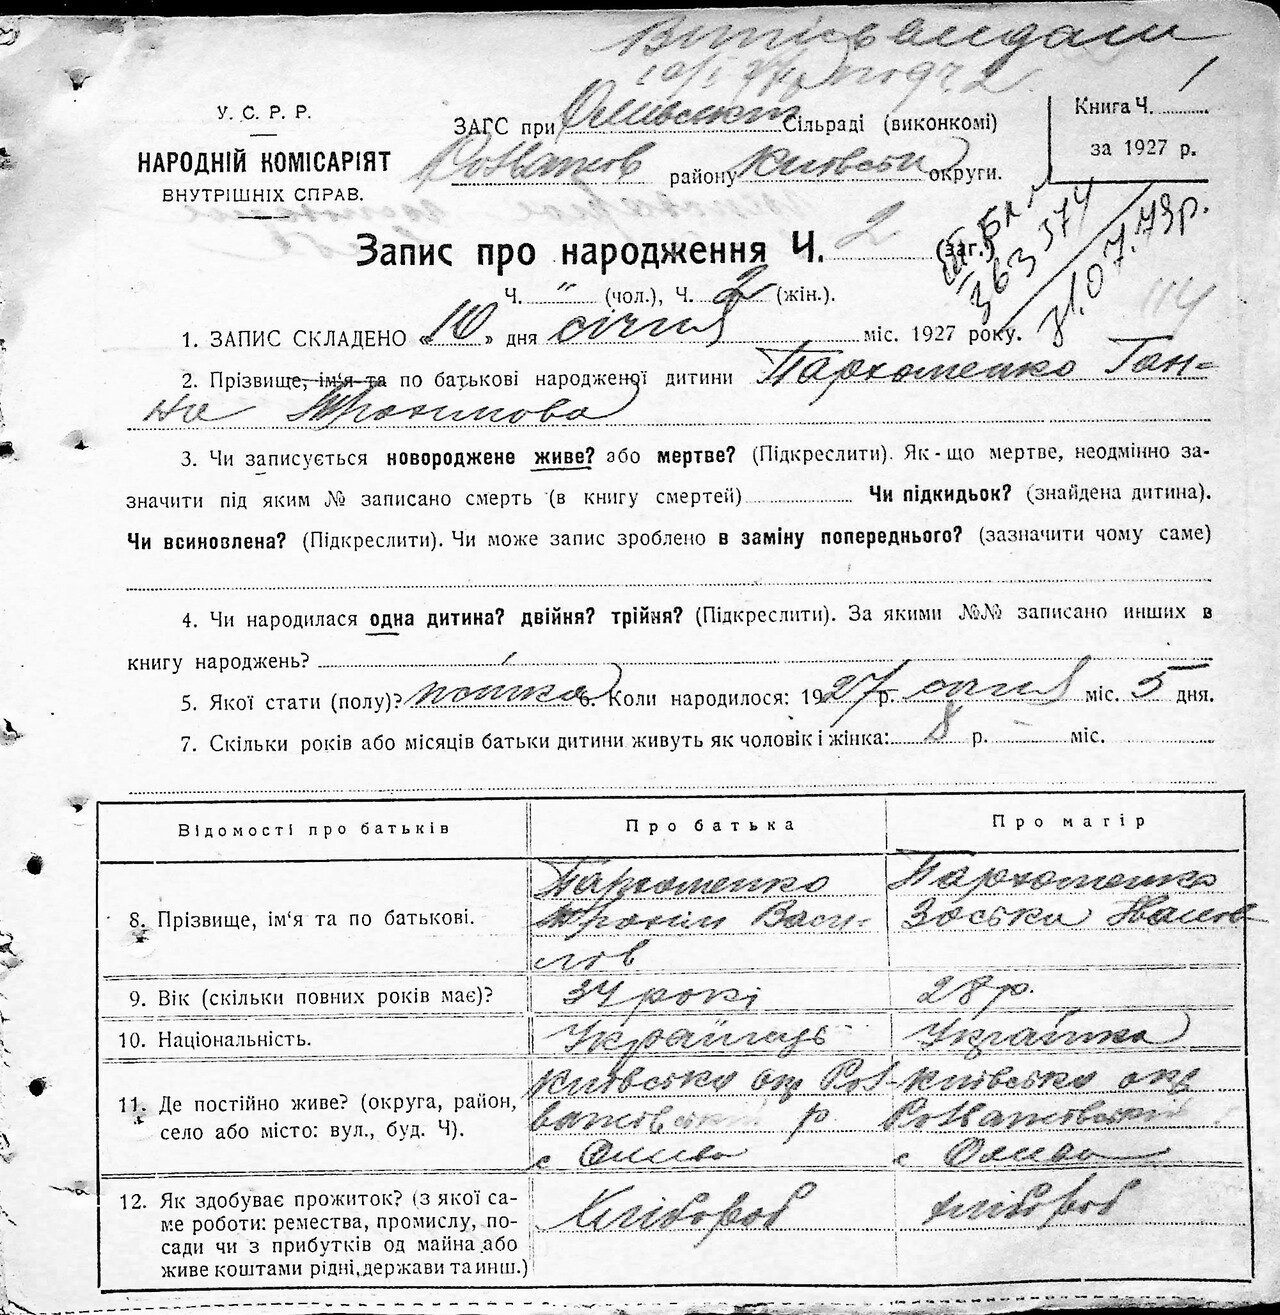 Витяг видали
10/I 27 р.
1
У. С. Р. Р.
НАРОДНІЙ КОМІСАРІЯТ
ВНУТРІШНІХ СПРАВ.
ЗАГС при Олівській Сільраді (виконкомі)
Розважов району Київськ округи.
Книга Ч.
за 1927 р.
Запис про народження Ч. 2 (заг.)
363574
31.07.79р.
114
Ч. " (чол.), Ч. 2 (жін.).
1. ЗАПИС СКЛАДЕНО «10» дня січня міс. 1927 року.
2. Прізвище, ім'я та по батькові народженої дитини Пархоменко Ган-
на Трохимова
3. Чи записується новороджене живе? або мертве? (Підкреслити). Як-що мертве, неодмінно за-
значити під яким № записано смерть (в книгу смертей) Чи підкидьок? (знайдена дитина).
Чи всиновлена? (Підкреслити). Чи може запис зроблено в заміну попереднього? (зазначити чому саме)
4. Чи народилася одна дитина? двійня? трійня? (Підкреслити). За якими №№ записано инших в
книгу народжень?
5. Якої стати (полу)? жіноча 6. Коли народилося: 1927 р. січня міс. 5 дня.
7. Скільки років або місяців батьки дитини живуть як чоловік і жінка: 8 р. міс.
Відомості про батьків
Про батька
Про матір
8. Прізвище, ім'я та по батькові.
Пархоменко
Трохим Васи-
лов
Пархоменко
Зоська
9. Вік (скільки повних років має)?
34 рокі
28 р.
10. Національність.
Українець
Українка
11. Де постійно живе? (округа, район,
село або місто: вул., буд. Ч).
Київсько окр Роз-
важівський р
с Олива
Київсько окр
Розважівський
с Олива
12. Як здобуває прожиток? (з якої са-
ме роботи: ремества, промислу, по-
сади чи з прибутків од майна або
живе коштами рідні, держави та инш.)
Хлібороб
хлібороб